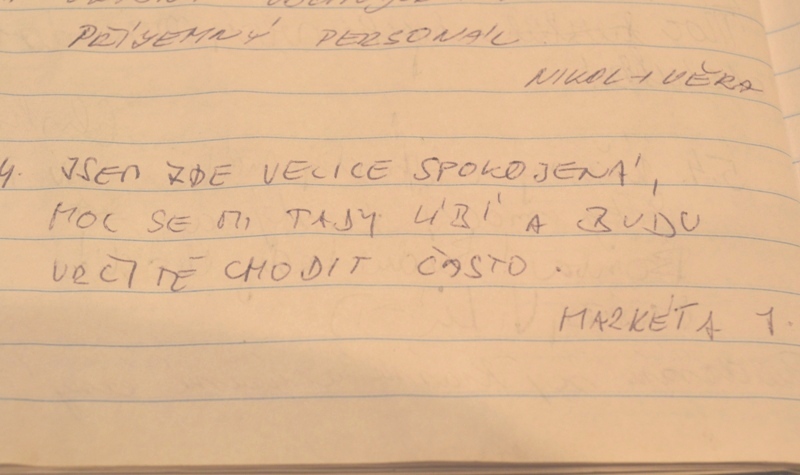 PŘÍJEMNÝ PERSONÁL
NIKOL + VĚRA
4. JSEM ZDE VELICE SPOKOJENÁ,
MOC SE MI TADY LÍBÍ A BUDU
URČITĚ CHODIT ČASTO.
MARKÉTA J.